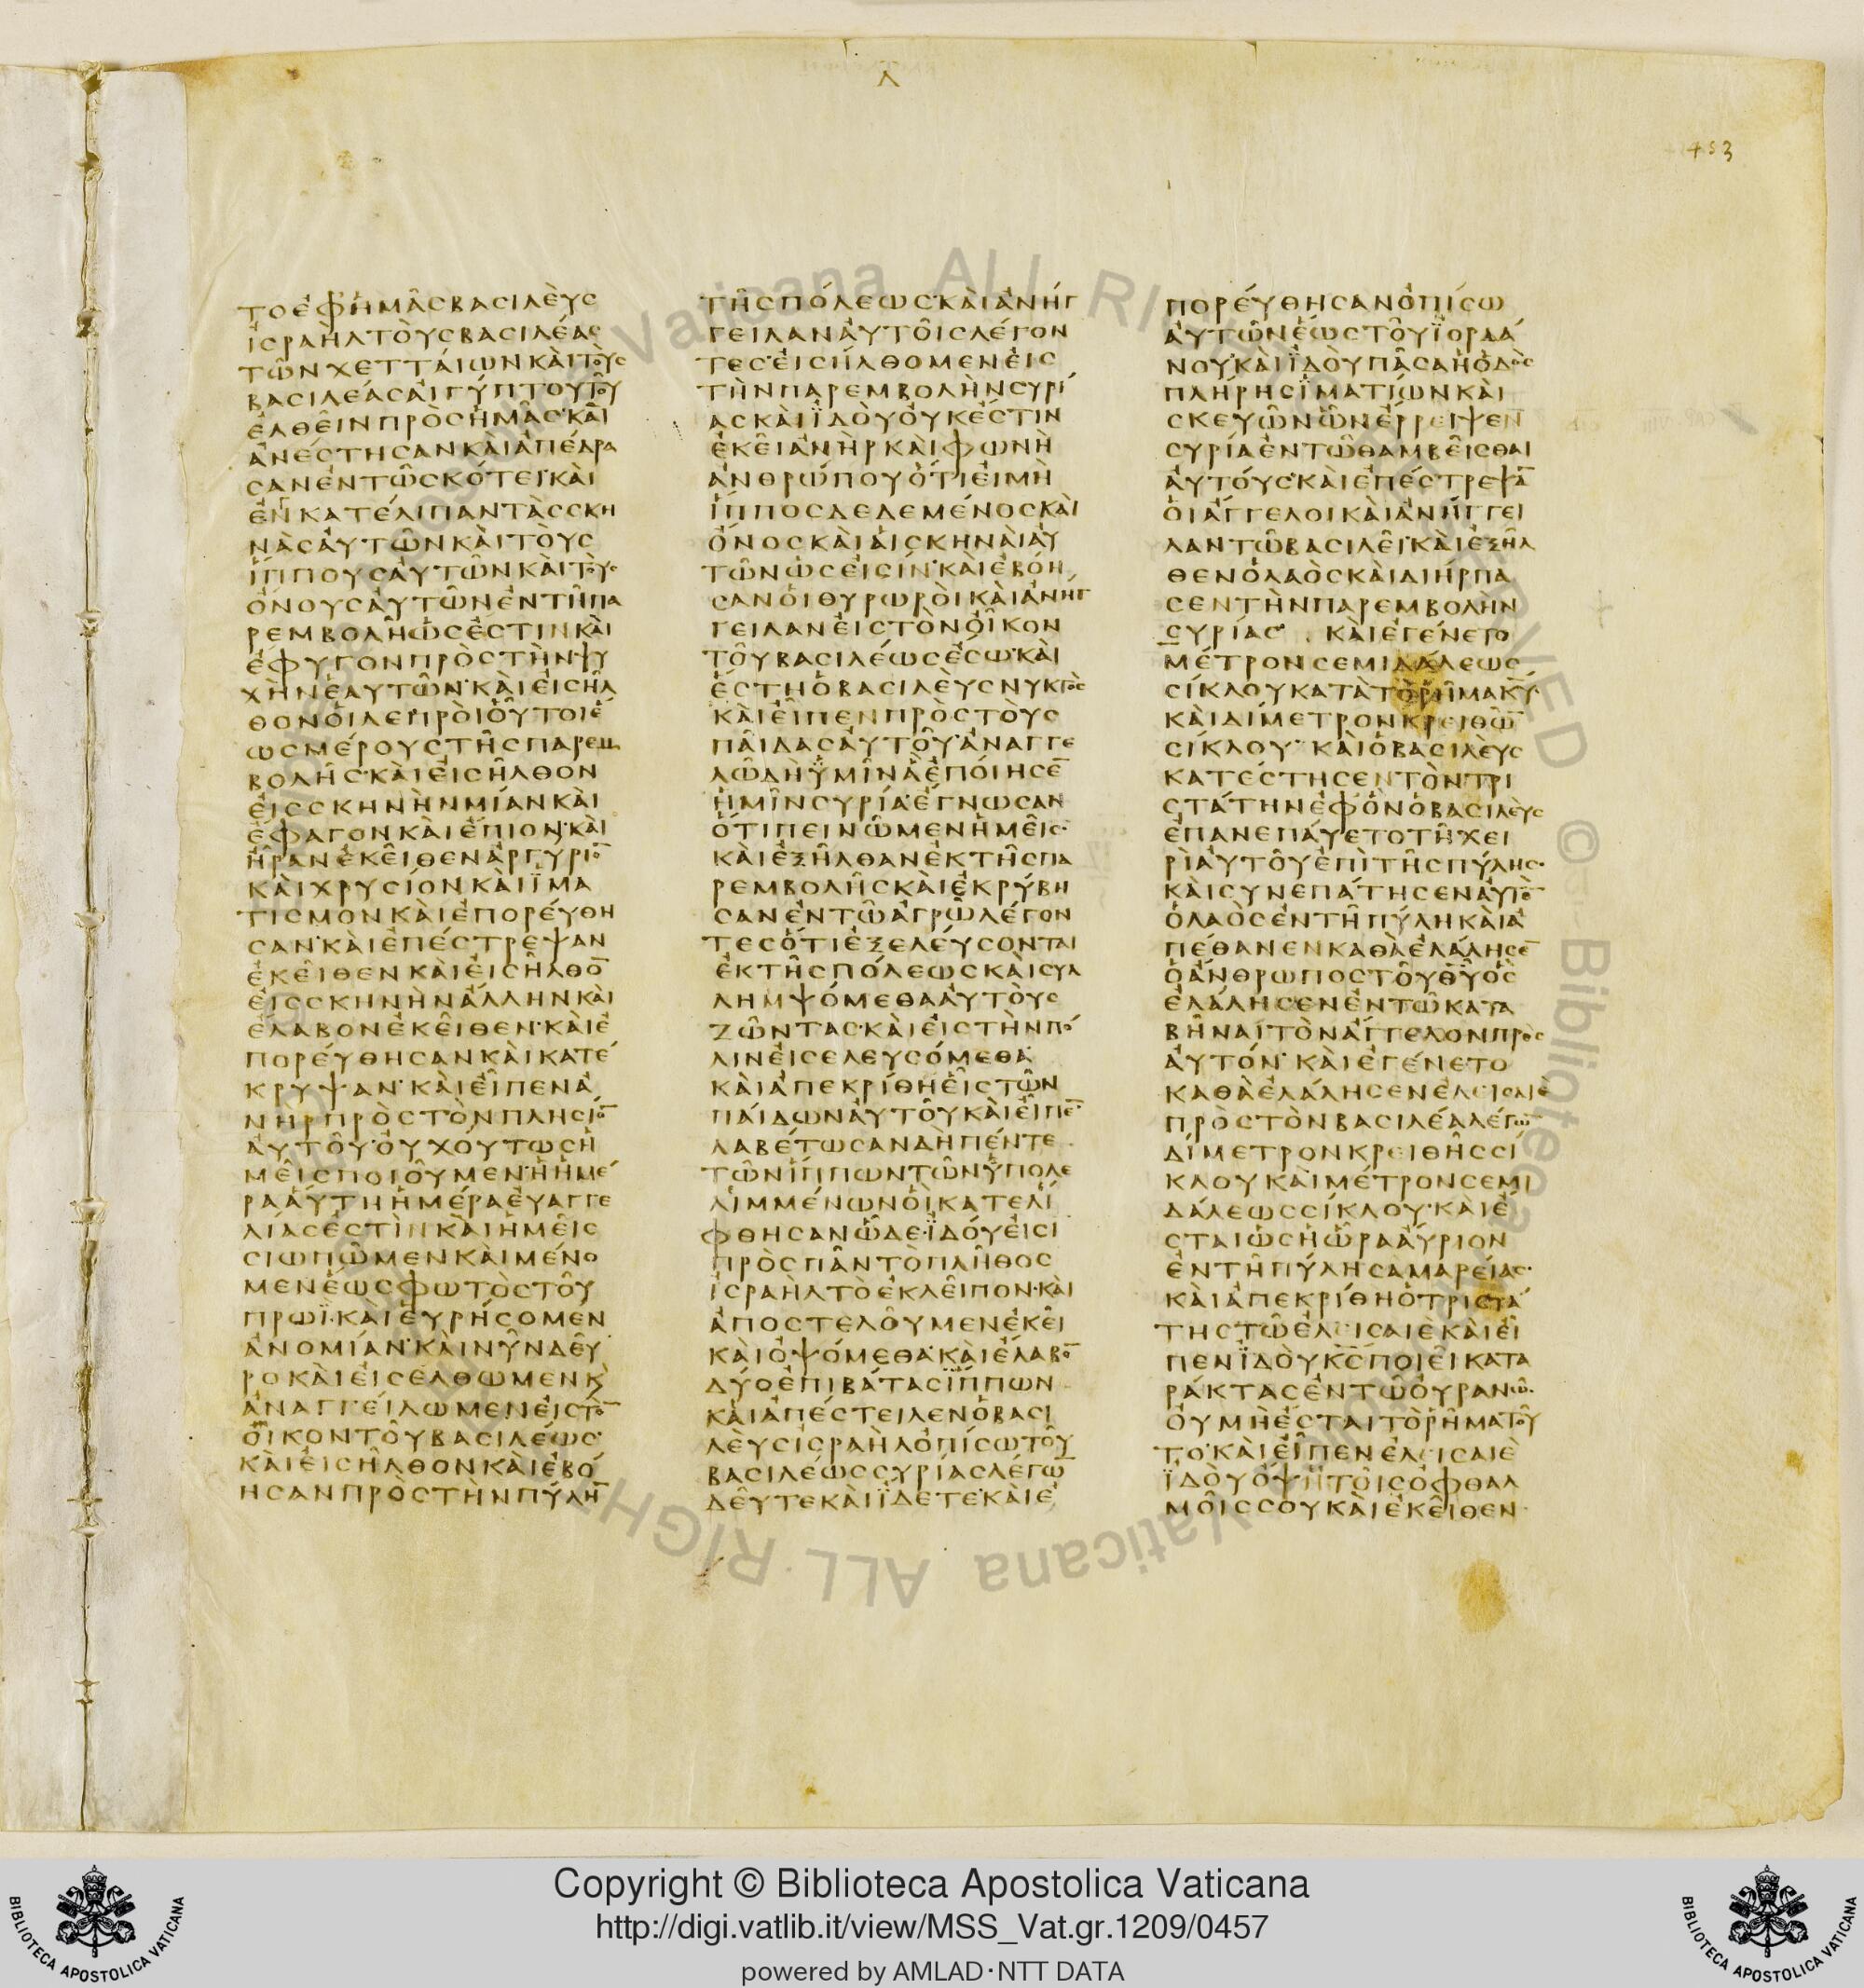 Λ
453
ΤΟ ἘΦ ἩΜΑ͂Σ ΒΑΣΙΛΕῪΣ
ἸΣΡΑῊΛ ΤΟῪΣ ΒΑΣΙΛΈΑΣ
ΤΩ͂Ν ΧΕΤΤΆΙΩΝ ΚΑῚ ΤΟῪΣ
ΒΑΣΙΛΈΑΣ ΑἸΓΎΠΤΟΥ ΤΟΥ͂
ἘΛΘΕΙ͂Ν ΠΡῸΣ ἩΜΑ͂Σ· ΚΑῚ
ἈΝΈΣΤΗΣΑΝ ΚΑῚ ἈΠΈΔΡΑ
ΣΑΝ ἘΝ ΤΩ͂ ΣΚΌΤΕΙ· ΚΑῚ
ἘΝΚΑΤΈΛΙΠΑΝ ΤᾺΣ ΣΚΗ
ΝᾺΣ ἈΥΤΩ͂Ν ΚΑῚ ΤΟῪΣ
ἽΠΠΟΥΣ ἈΥΤΩ͂Ν ΚΑῚ ΤΟῪΣ
ὌΝΟΥΣ ἈΥΤΩ͂Ν ἘΝ ΤΗ͂ ΠΑ
ΡΕΜΒΟΛΗ͂ ὩΣ ἘΣΤΙΝ ΚΑῚ
ἜΦΥΓΟΝ ΠΡῸΣ ΤῊΝ ΨΥ
ΧῊΝ ἙΑΥΤΩ͂Ν· ΚΑῚ ΕἸΣΗ͂Λ
ΘΟΝ ὉΙ ΛΕΠΡΟῚ ΟὟΤΟΙ Ἕ
ΩΣ ΜΈΡΟΥΣ ΤΗ͂Σ ΠΑΡΕΜ
ΒΟΛΗ͂Σ· ΚΑῚ ΕἸΣΗ͂ΛΘΟΝ
ΕἸΣ ΣΚΗΝῊΝ ΜΊΑΝ ΚΑῚ
ἜΦΑΓΟΝ ΚΑῚ ἜΠΙΟΝ· ΚΑῚ
ἮΡΑΝ ἘΚΕΙ͂ΘΕΝ ἈΡΓΎΡΙΟ̅
ΚΑῚ ΧΡΥΣΊΟΝ ΚΑῚ ἹΜΑ
ΤΙΣΜΟΝ ΚΑῚ ἘΠΟΡΕΎΘΗ
ΣΑΝ· ΚΑῚ ἘΠΈΣΤΡΕΨΑΝ
ἘΚΕΙ͂ΘΕΝ ΚΑῚ ΕἸΣΗ͂ΛΘΟ̅
ΕἸΣ ΣΚΗΝῊΝ ἌΛΛΗΝ ΚΑῚ
ἜΛΑΒΟΝ ἘΚΕΙ͂ΘΕΝ· ΚΑῚ Ἐ
ΠΟΡΕΎΘΗΣΑΝ ΚΑῚ ΚΑΤΈ
ΚΡΥΨΑΝ· ΚΑῚ ΕἾΠΕΝ Ἀ
ΝΗΡ ΠΡῸΣ ΤῸΝ ΠΛΗΣΊΟ̅
ἈΥΤΟΥ͂· ΟΥ̓Χ ὍΥΤΩΣ Ἡ
ΜΕΙ͂Σ ΠΟΙΟΥ͂ΜΕΝ· Ἡ ἩΜΈ
ΡΑ ἍΥΤΗ ἩΜΈΡΑ ἘΥΑΓΓΕ
ΛΊΑΣ ἘΣΤῚΝ ΚΑῚ ἩΜΕΙ͂Σ
ΣΙΩΠΩ͂ΜΕΝ ΚΑῚ ΜΈΝΟ
ΜΕΝ ἝΩΣ ΦΩΤῸΣ ΤΟΥ͂
ΠΡΩΪ· ΚΑῚ ἙΥΡΉΣΟΜΕΝ
ἈΝΟΜΊΑΝ· ΚΑῚ ΝΥ͂Ν ΔΕΥ͂
ΡΟ ΚΑῚ ΕἸΣΕΛΘΩΜΕΝ Κ
ἈΝΑΓΓΕΊΛΩΜΕΝ ΕἸΣ ΤῸ̅
ΟἾΚΟΝ ΤΟΥ͂ ΒΑΣΙΛΈΩΣ·
ΚΑῚ ΕἸΣΗ͂ΛΘΟΝ ΚΑῚ ἘΒΌ
ΗΣΑΝ ΠΡῸΣ ΤῊΝ ΠΎΛΗ̅
ΤΗ͂Σ ΠΌΛΕΩΣ· ΚΑῚ ἈΝΉΓ
ΓΕΙΛΑΝ ἈΥΤΟΙ͂Σ ΛΈΓΟΝ
ΤΕΣ· ΕἸΣΉΛΘΟΜΕΝ ΕἸΣ
ΤῊΝ ΠΑΡΕΜΒΟΛῊΝ ΣΥΡΊ
ΑΣ ΚΑῚ ἸΔΟῪ ΟΥ̓Κ ἜΣΤΙΝ
ἘΚΕΙ͂ ἈΝῊΡ ΚΑῚ ΦΩΝῊ
ἈΝΘΡΏΠΟΥ ὍΤΙ ΕἸ ΜῊ
ἽΠΠΟΣ ΔΕΔΕΜΈΝΟΣ ΚΑῚ
ὌΝΟΣ ΚΑῚ ἉΙ ΣΚΗΝΑῚ ἈΥ
ΤΩ͂Ν ὩΣ ΕἸΣΊΝ· ΚΑῚ ἘΒΌΗ
ΣΑΝ ὉΙ ΘΥΡΩΡΟῚ ΚΑῚ ἈΝΉΓ
ΓΕΙΛΑΝ ΕἸΣ ΤῸΝ ΟἾΚΟΝ
ΤΟΥ͂ ΒΑΣΙΛΈΩΣ ἜΣΩ· ΚΑῚ
ἜΣΤΗ Ὁ ΒΑΣΙΛΕῪΣ ΝΥΚΤῸΣ
ΚΑῚ ΕἾΠΕΝ ΠΡῸΣ ΤΟῪΣ
ΠΑΙ͂ΔΑΣ ἈΥΤΟΥ͂· ἈΝΑΓΓΕ
ΛΩ͂ ΔῊ ὙΜΙ͂Ν Ἃ ἘΠΌΙΗΣΕ̅
ἩΜΙ͂Ν ΣΥΡΊΑ· ἜΓΝΩΣΑΝ
ὍΤΙ ΠΕΙΝΩ͂ΜΕΝ ἩΜΕΙ͂Σ·
ΚΑῚ ἘΞΗ͂ΛΘΑΝ ἘΚ ΤΗ͂Σ ΠΑ
ΡΕΜΒΟΛΗ͂Σ ΚΑῚ ἘΚΡΎΒΗ
ΣΑΝ ἘΝ ΤΩ͂ ἈΓΡΩ͂ ΛΈΓΟΝ
ΤΕΣ ὍΤΙ ἘΞΕΛΕΎΣΟΝΤΑΙ
ἘΚ ΤΗ͂Σ ΠΌΛΕΩΣ ΚΑῚ ΣΥΛ
ΛΗΜΨΌΜΕΘΑ ἈΥΤΟῪΣ
ΖΩ͂ΝΤΑΣ· ΚΑῚ ΕἸΣ ΤῊΝ ΠΌ
ΛΙΝ ΕἸΣΕΛΕΥΣΌΜΕΘΑ·
ΚΑῚ ἈΠΕΚΡΊΘΗ ΕἿΣ ΤΩ͂Ν
ΠΑΊΔΩΝ ἈΥΤΟΥ͂ ΚΑῚ ΕἾΠΕ̅·
ΛΑΒΈΤΩΣΑΝ ΔῊ ΠΈΝΤΕ
ΤΩ͂Ν ἽΠΠΩΝ ΤΩ͂Ν ὙΠΟΛΕ
ΛΙΜΜΈΝΩΝ ὉΙ ΚΑΤΕΛΊ
ΦΘΗΣΑΝ ὯΔΕ· ἸΔΟΎ ΕἸΣΙ
ΠΡῸΣ ΠΑ͂Ν ΤῸ ΠΛΗ͂ΘΟΣ
ἸΣΡΑῊΛ ΤῸ ἘΚΛΕΙ͂ΠΟΝ· ΚΑῚ
ἈΠΟΣΤΕΛΟΥ͂ΜΕΝ ἘΚΕΙ͂
ΚΑῚ ὈΨΌΜΕΘΑ· ΚΑῚ ἜΛΑΒΟ̅
ΔΎΟ ἘΠΙΒΆΤΑΣ ἽΠΠΩΝ
ΚΑῚ ἈΠΈΣΤΕΙΛΕΝ Ὁ ΒΑΣΙ
ΛΕῪΣ ἸΣΡΑῊΛ ὈΠΊΣΩ ΤΟΥ͂
ΒΑΣΙΛΈΩΣ ΣΥΡΊΑΣ ΛΈΓΩ̅
ΔΕΥ͂ΤΕ ΚΑῚ ἼΔΕΤΕ· ΚΑῚ Ἐ
ΠΟΡΕΎΘΗΣΑΝ ὈΠΊΣΩ
ἈΥΤΩ͂Ν ἝΩΣ ΤΟΥ͂ ἸΟΡΔΆ
ΝΟΥ· ΚΑῚ ἸΔΟῪ ΠΑ͂ΣΑ Ἡ ὉΔῸΣ
ΠΛΉΡΗΣ ἹΜΑΤΊΩΝ ΚΑῚ
ΣΚΕΥΩ͂Ν ὯΝ ἜΡΡΕΙΨΕΝ
ΣΥΡΊΑ ἘΝ ΤΩ͂ ΘΑΜΒΕΙ͂ΣΘΑΙ
ἈΥΤΟΎΣ· ΚΑῚ ἘΠΈΣΤΡΕΨΑ̅
ὉΙ ἌΓΓΕΛΟΙ ΚΑῚ ἈΝΉΓΓΕΙ
ΛΑΝ ΤΩ͂ ΒΑΣΙΛΕΙ͂· ΚΑῚ ἘΞΗ͂Λ
ΘΕΝ Ὁ ΛΑῸΣ ΚΑῚ ΔΙΉΡΠΑ
ΣΕΝ ΤῊΝ ΠΑΡΕΜΒΟΛῊΝ
ΣΥΡΊΑΣ· ΚΑῚ ἘΓΈΝΕΤΟ
ΜΈΤΡΟΝ ΣΕΜΙΔΆΛΕΩΣ
ΣΊΚΛΟΥ ΚΑΤᾺ ΤῸ ῬΗ͂ΜΑ Κ͞Υ·
ΚΑῚ ΔΊΜΕΤΡΟΝ ΚΡΕΙΘΩ̅
ΣΊΚΛΟΥ· ΚΑῚ Ὁ ΒΑΣΙΛΕῪΣ
ΚΑΤΈΣΤΗΣΕΝ ΤῸΝ ΤΡΙ
ΣΤΆΤΗΝ ἘΦ ὋΝ Ὁ ΒΑΣΙΛΕῪΣ
ἘΠΑΝΕΠΑΎΕΤΟ ΤΗ͂ ΧΕΙ
ΡῚ ἈΥΤΟΥ͂ ἘΠῚ ΤΗ͂Σ ΠΎΛΗΣ·
ΚΑῚ ΣΥΝΕΠΆΤΗΣΕΝ ἈΥΤῸ̅
Ὁ ΛΑῸΣ ἘΝ ΤΗ͂ ΠΎΛΗ ΚΑῚ Ἀ
ΠΈΘΑΝΕΝ ΚΑΘᾺ ἘΛΆΛΗΣΕ̅
Ὁ ἌΝΘΡΩΠΟΣ ΤΟΥ͂ Θ͞Υ ὋΣ
ἘΛΆΛΗΣΕΝ ἘΝ ΤΩ͂ ΚΑΤΑ
ΒΗ͂ΝΑΙ ΤῸΝ ἌΓΓΕΛΟΝ ΠΡῸΣ
ἈΥΤΌΝ· ΚΑῚ ἘΓΈΝΕΤΟ
ΚΑΘᾺ ἘΛΆΛΗΣΕΝ ἘΛΕΙΣΑΙΈ
ΠΡῸΣ ΤῸΝ ΒΑΣΙΛΈΑ ΛΈΓΩ̅
ΔΊΜΕΤΡΟΝ ΚΡΕΙΘΗ͂Σ ΣΊ
ΚΛΟΥ ΚΑῚ ΜΈΤΡΟΝ ΣΕΜΙ
ΔΆΛΕΩΣ ΣΊΚΛΟΥ· ΚΑῚ Ἔ
ΣΤΑΙ ὩΣ Ἡ ὭΡΑ ἈΎΡΙΟΝ
ἘΝ ΤΗ͂ ΠΎΛΗ ΣΑΜΑΡΕΊΑΣ·
ΚΑῚ ἈΠΕΚΡΊΘΗ Ὁ ΤΡΙΣΤΆ
ΤΗΣ ΤΩ͂ ἘΛΕΙΣΑΙΈ ΚΑῚ ΕἾ
ΠΕΝ ἸΔΟῪ Κ͞Σ ΠΟΙΕΙ͂ ΚΑΤΑ
ΡΆΚΤΑΣ ἘΝ ΤΩ͂ ΟΥ̓ΡΑΝΩ͂·
ΟΥ̓ ΜῊ ἜΣΤΑΙ ΤῸ ῬΗ͂ΜΑ ΤΟΥ͂
ΤΟ· ΚΑῚ ΕἾΠΕΝ ἘΛΕΙΣΑΙΈ
ἸΔΟῪ ὌΨΗ ΤΟΙ͂Σ ὈΦΘΑΛ
ΜΟΙ͂Σ ΣΟΥ ΚΑῚ ἘΚΕΙ͂ΘΕΝ
Copyright © Biblioteca Apostolica Vaticana
http://digi.vatlib.it/view/MSS_Vat.gr.1209/0457
powered by AMLAD·NTT DATA
BIBLIOTECA APOSTOLICA VATICANA
BIBLIOTECA APOSTOLICA VATICANA